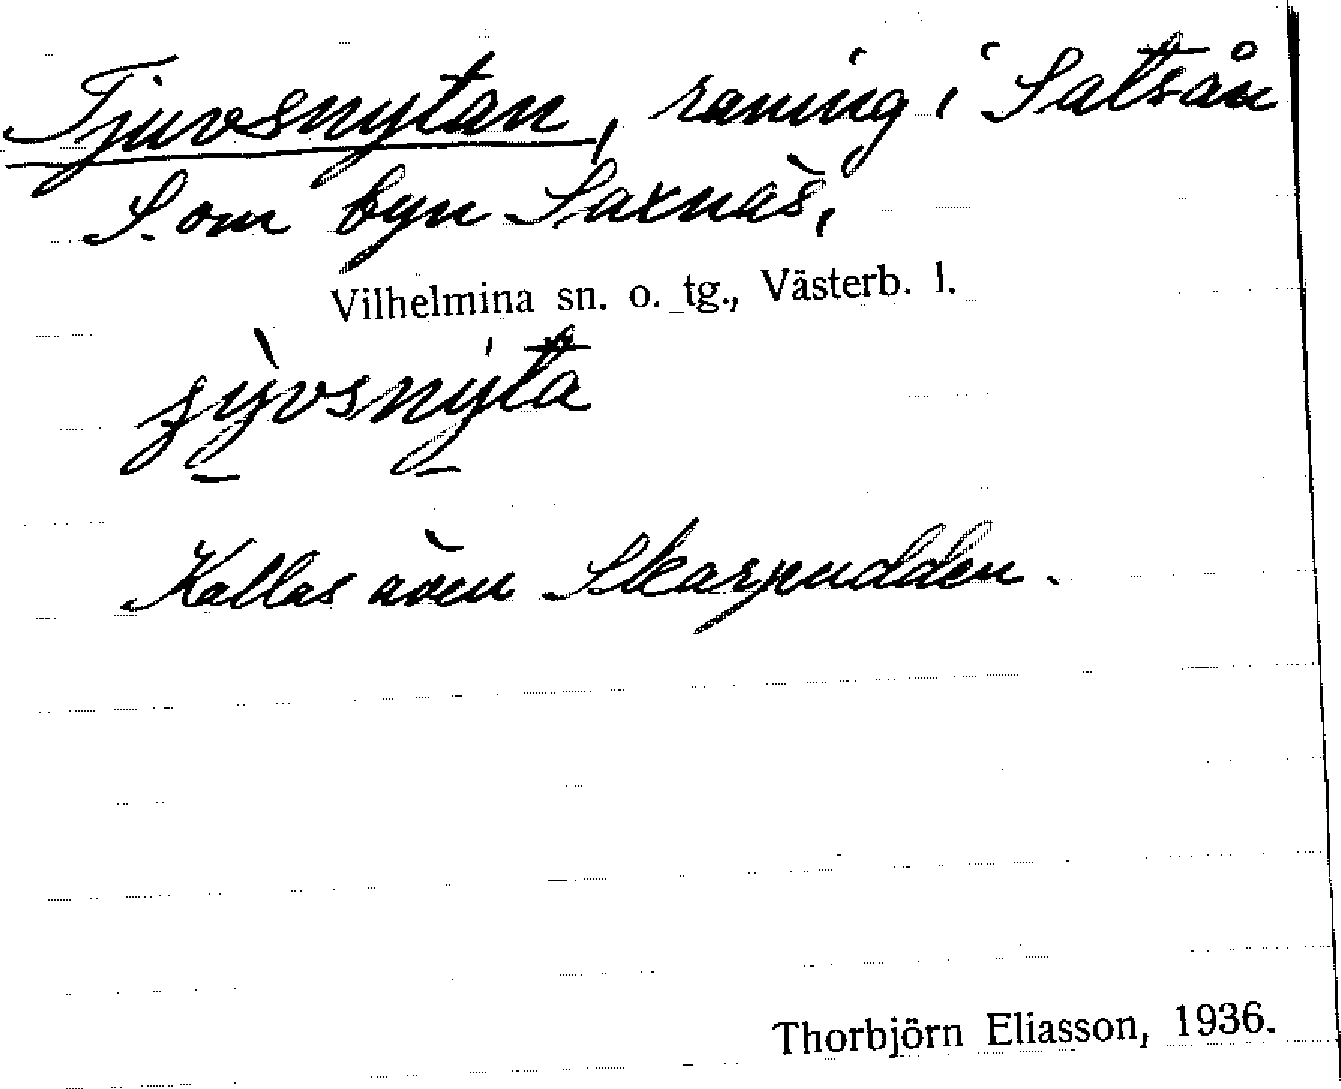 Tjuvsnytan, raning i Satsån
S. om byn Saxnäs,
Vilhelmina sn. o. tg., Västerb. l.
Kallas även Skarpudden.
Thorbjörn Eliasson, 1936.